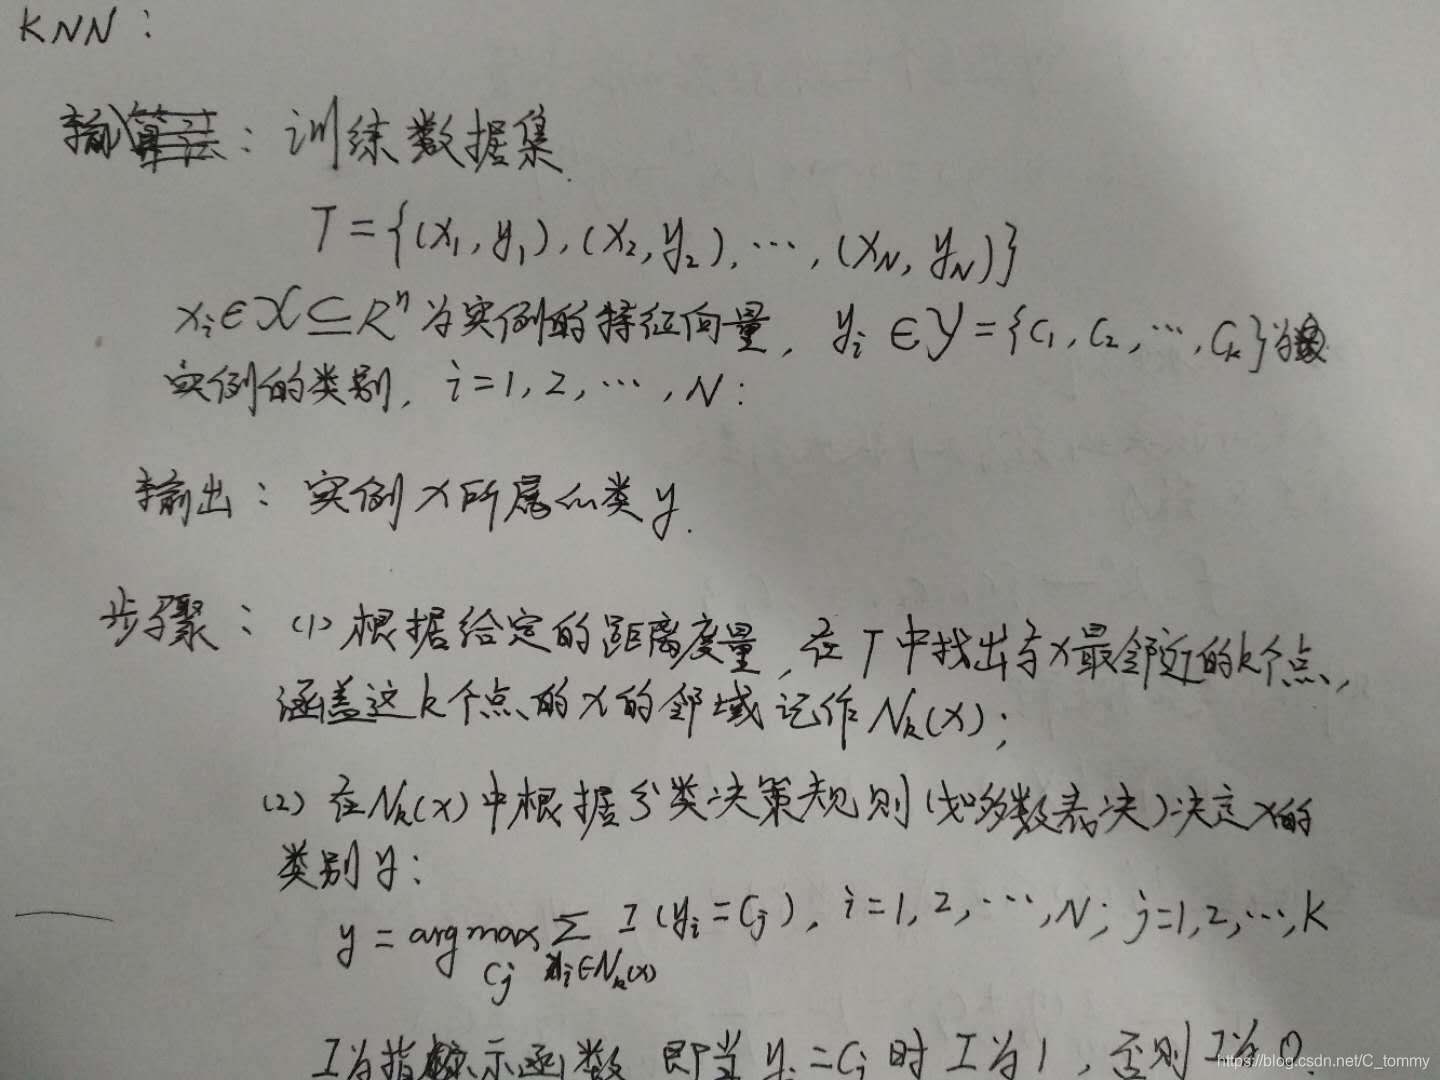 KNN：
输入：训练数据集.
T={(x₁,y₁),(x₂,y₂),⋯,(x_N,y_N)}
xᵢ∈𝒳⊆Rⁿ为实例的特征向量，yᵢ∈𝒴={c₁,c₂,⋯,c_k}为
实例的类别，i=1,2,⋯,N：
输出：实例x所属的类y.
步骤：(1)根据给定的距离度量，在T中找出与x最邻近的k个点，
涵盖这k个点的x的邻域记作N_k(x)；
(2)在N_k(x)中根据分类决策规则(如多数表决)决定x的
类别y：
y=argmax Σ I(yᵢ=cⱼ)，i=1,2,⋯,N；j=1,2,⋯,K
cⱼ xᵢ∈N_k(x)
I为指示函数，即当yᵢ=cⱼ时I为1，否则I为0.
https://blog.csdn.net/C_tommy